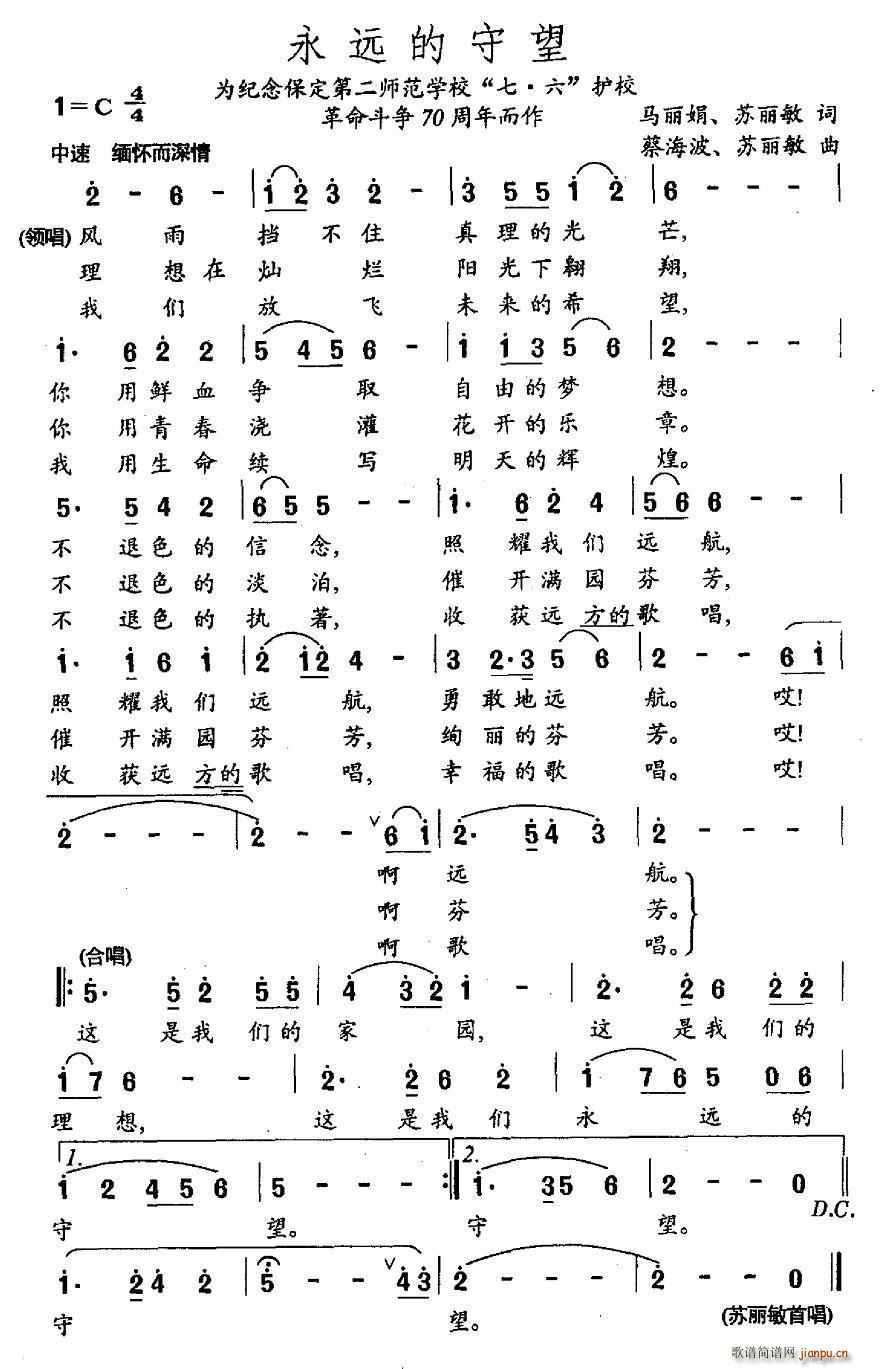 永远的守望
为纪念保定第二师范学校“七·六”护校
革命斗争70周年而作
1=C 4/4
马丽娟、苏丽敏 词
蔡海波、苏丽敏 曲
中速 缅怀而深情
2̇ - 6 - | 1̇ 2̇ 3̇ 2̇ - | 3̇ 5 5 1̇ 2̇ | 6 - - - |
(领唱)风 雨 挡 不 住 真 理 的 光 芒,
理 想 在 灿 烂 阳 光 下 翱 翔,
我 们 放 飞 未 来 的 希 望,
1̇· 6 2̇ 2 | 5 4 5 6 - | 1̇ 1̇ 3 5 6 | 2 - - - |
你 用 鲜 血 争 取 自 由 的 梦 想。
你 用 青 春 浇 灌 花 开 的 乐 章。
我 用 生 命 续 写 明 天 的 辉 煌。
5· 5 4 2 | 6 5 5 - - | 1̇· 6 2̇ 4 | 5 6 6 - - |
不 退 色 的 信 念, 照 耀 我 们 远 航,
不 退 色 的 淡 泊, 催 开 满 园 芬 芳,
不 退 色 的 执 著, 收 获 远 方的 歌 唱,
1̇· 1̇ 6 1̇ | 2̇ 1̇2̇ 4 - | 3 2·3 5 6 | 2 - - 6 1̇ |
照 耀 我 们 远 航, 勇 敢 地 远 航。 哎!
催 开 满 园 芬 芳, 绚 丽 的 芬 芳。 哎!
收 获 远 方的 歌 唱, 幸 福 的 歌 唱。 哎!
2̇ - - - | 2̇ - - ∨ 6 1̇ | 2̇· 5̇4̇ 3̇ | 2̇ - - - |
啊 远 航。
啊 芬 芳。
啊 歌 唱。
(合唱)
‖: 5̇· 5̇ 2̇ 5̇ 5̇ | 4̇ 3̇ 2̇ 1̇ - | 2̇· 2̇ 6 2̇ 2̇ |
这 是 我 们 的 家 园, 这 是 我 们 的
1̇ 7 6 - - | 2̇· 2̇ 6 2̇ | 1̇ 7 6 5 0 6 |
理 想, 这 是 我 们 永 远 的
1. 2.
1̇ 2 4 5 6 | 5 - - - :‖ 1̇· 3 5 6 | 2 - - 0 ‖
D.C.
守 望。 守 望。
1̇· 2̇ 4̇ 2̇ | 5̇ - - ∨ 4̇ 3̇ | 2̇ - - - | 2̇ - - 0 ‖
守 望。
(苏丽敏首唱)
歌谱简谱网
jianpu.cn